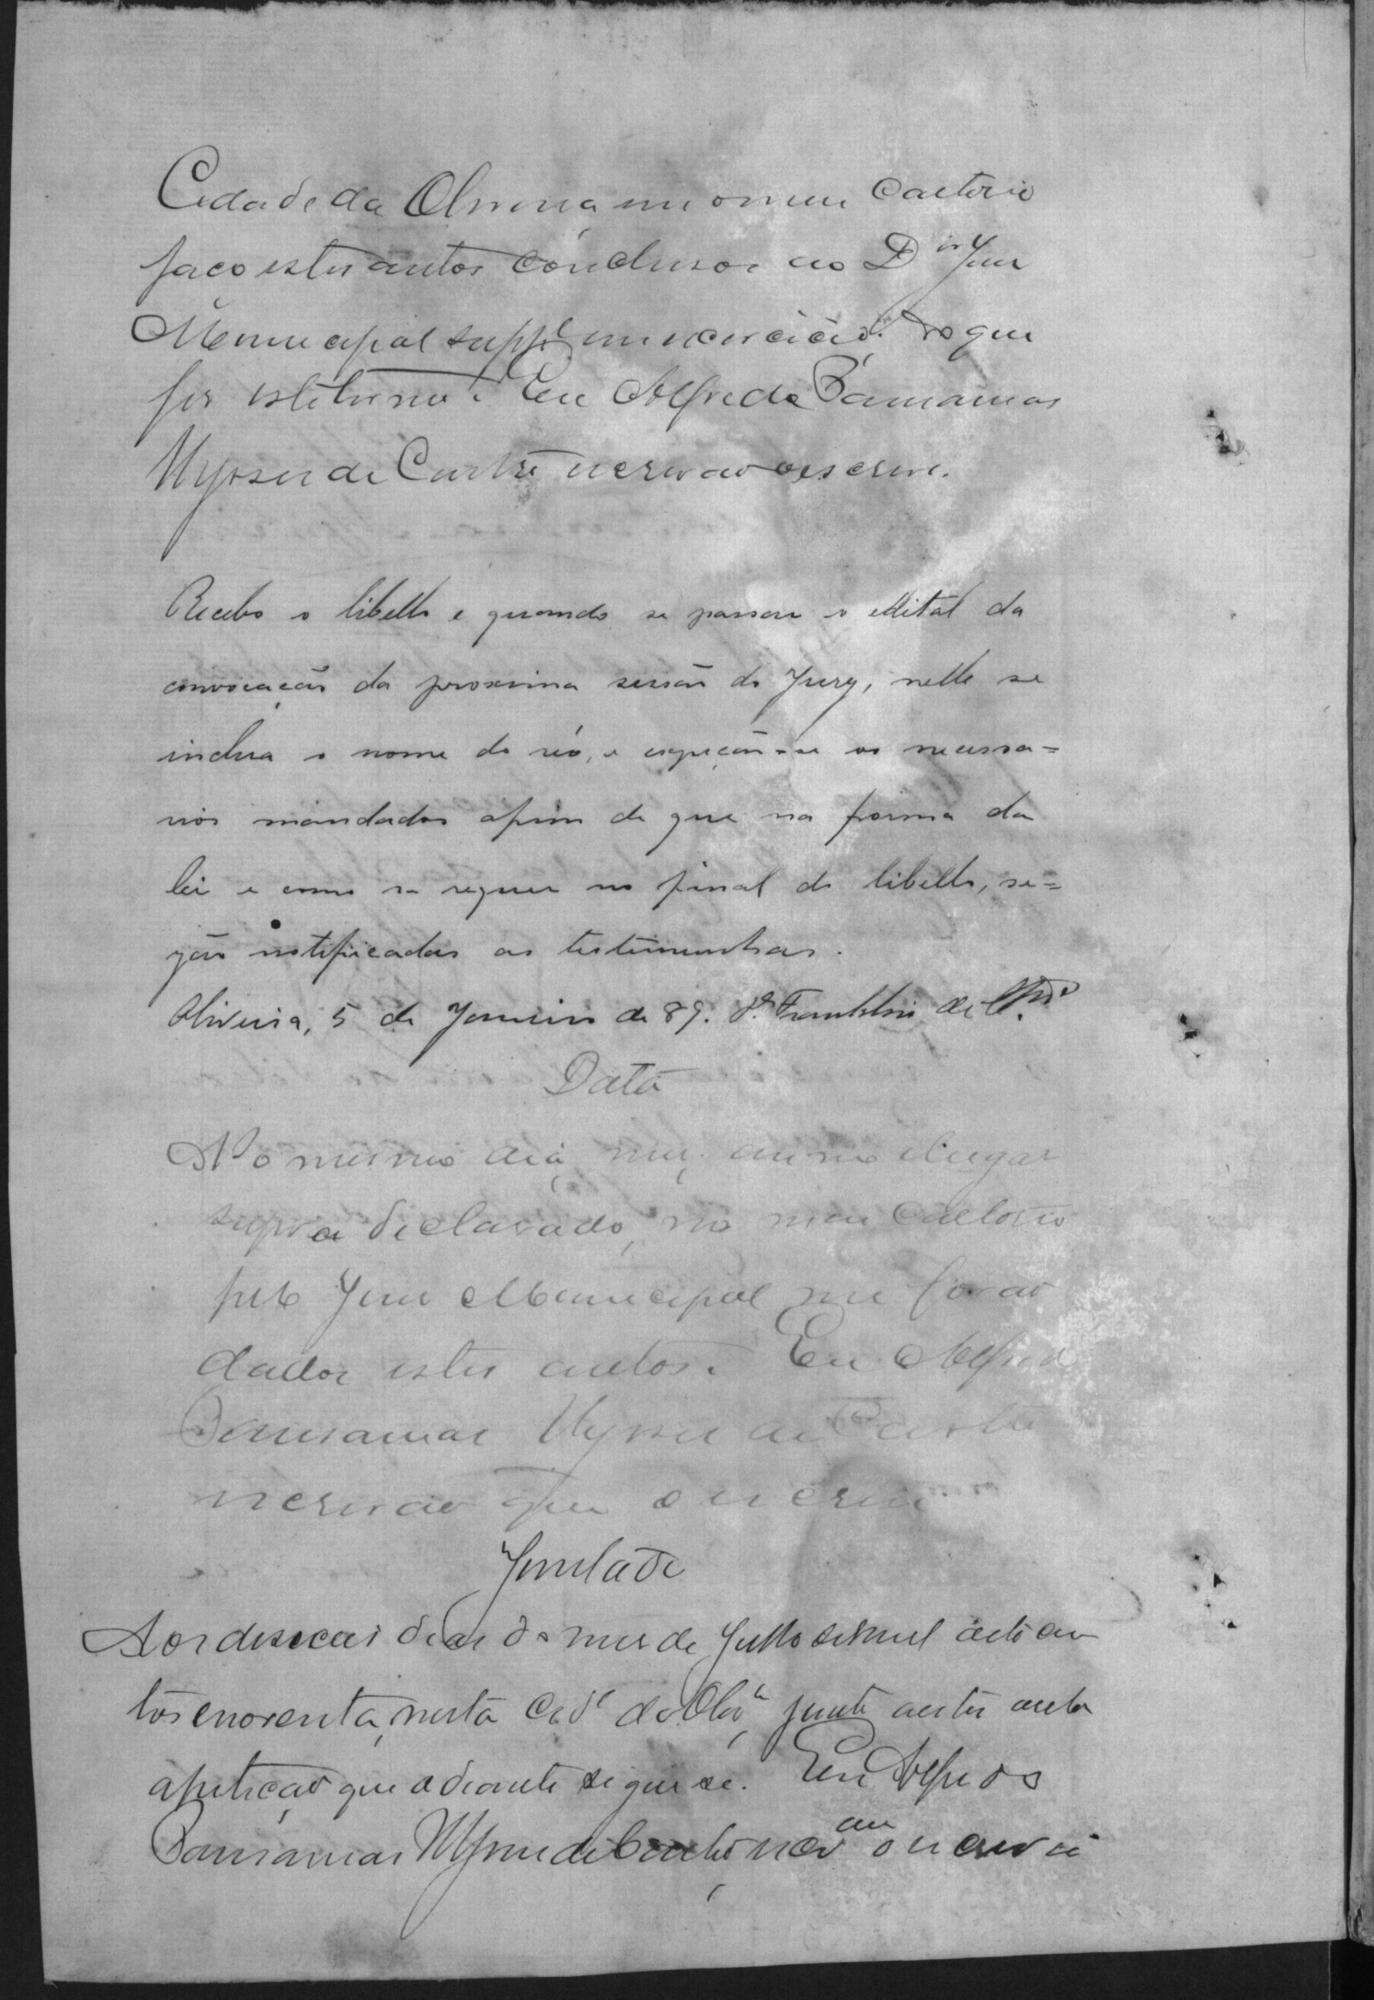 Cidade da Oliveira em o meu Cartorio
faço estes autos conclusos ao Dor Juiz
Municipal suppe em exercicio. Do que
fiz este termo. Eu Alfredo
Ulysses de Castro escrivao o escrevi.
Recebo o libello e quando se passar o edital da
convocação da proxima sessão do Jury, nelle se
inclua o nome do réo, e expeção-se os necessa=
rios mandados afim de que na forma da
lei e como se requer no final do libello, se=
jão notificadas as testemunhas.
Oliveira, 5 de Janeiro de 89. Franklin de
Data
No mesmo dia, mez, anno e lugar
supra declarado, no meu Cartorio
pelo Juiz Municipal me forao
dados estes autos. Eu Alfredo
Ulysses de Castro
escrivao que o escrevi
Juntada
Aos deseceis dias do mes de Julho de mil oito cen
tos e noventa, nesta Cide da Olivra junto a estes autos
a peticao que adeante segue se. Eu Alfredo
Ulysses de Castro escram o escrevi